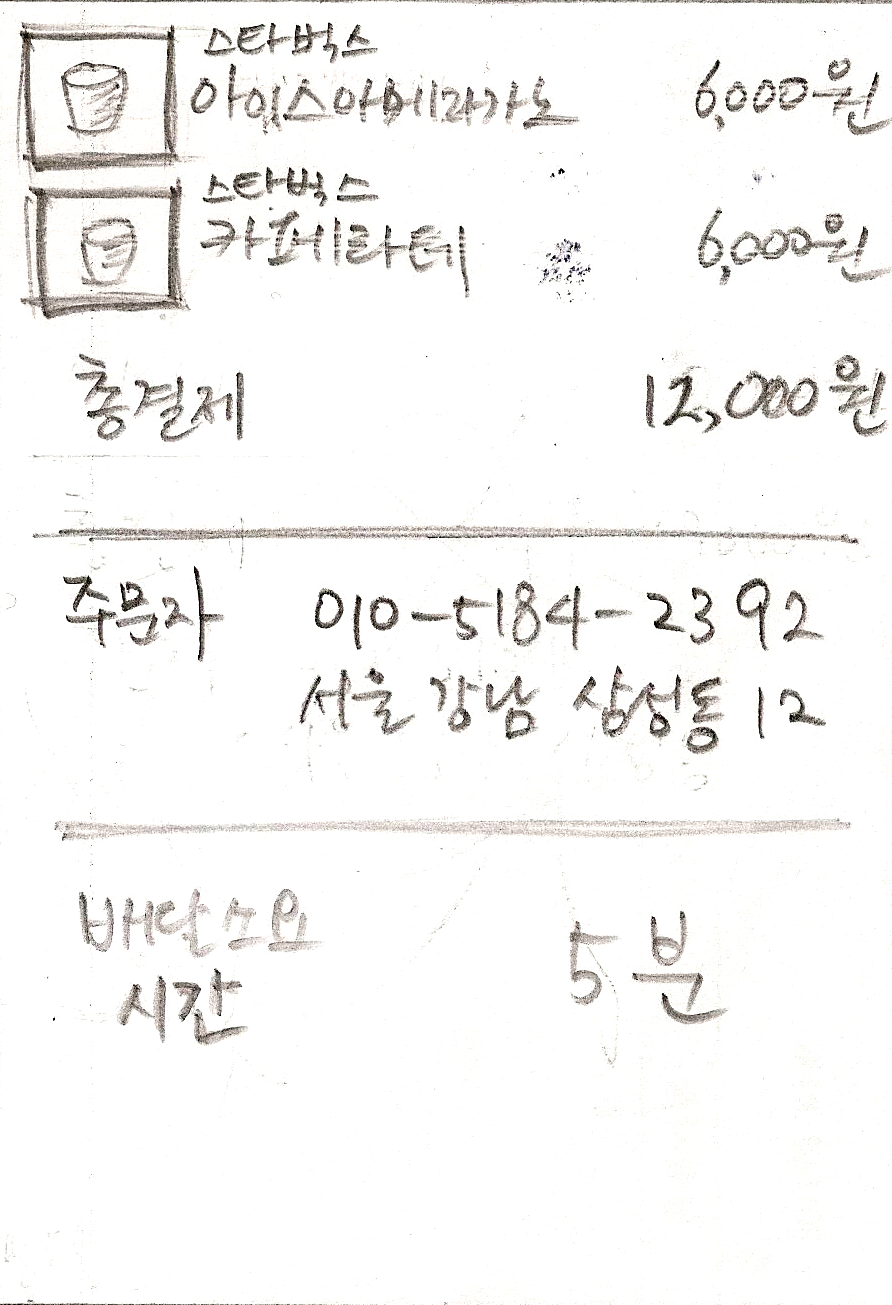 스타벅스
아이스아메리카노 6,000원
스타벅스
카페라테 6,000원
총결제 12,000원
주문자 010-5184-2392
서울 강남 삼성동 12
배달소요
시간 5분